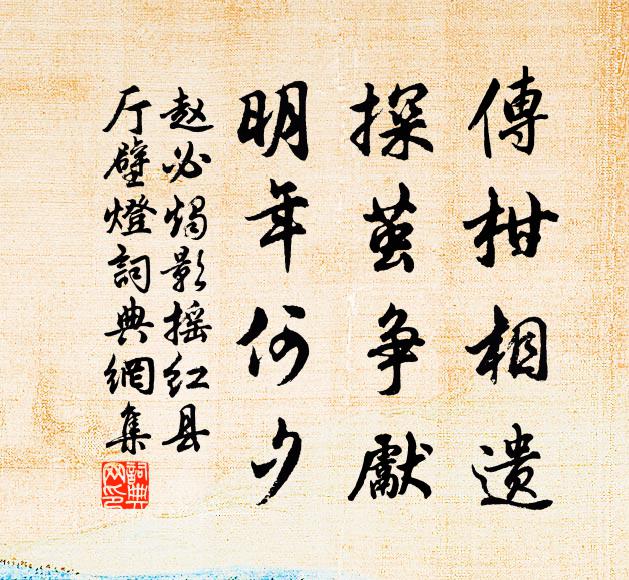 傳柑相遺
探茧争獻
明年何夕
赵必𤩪影摇红县
厅壁燈詞典網集
詞典网印